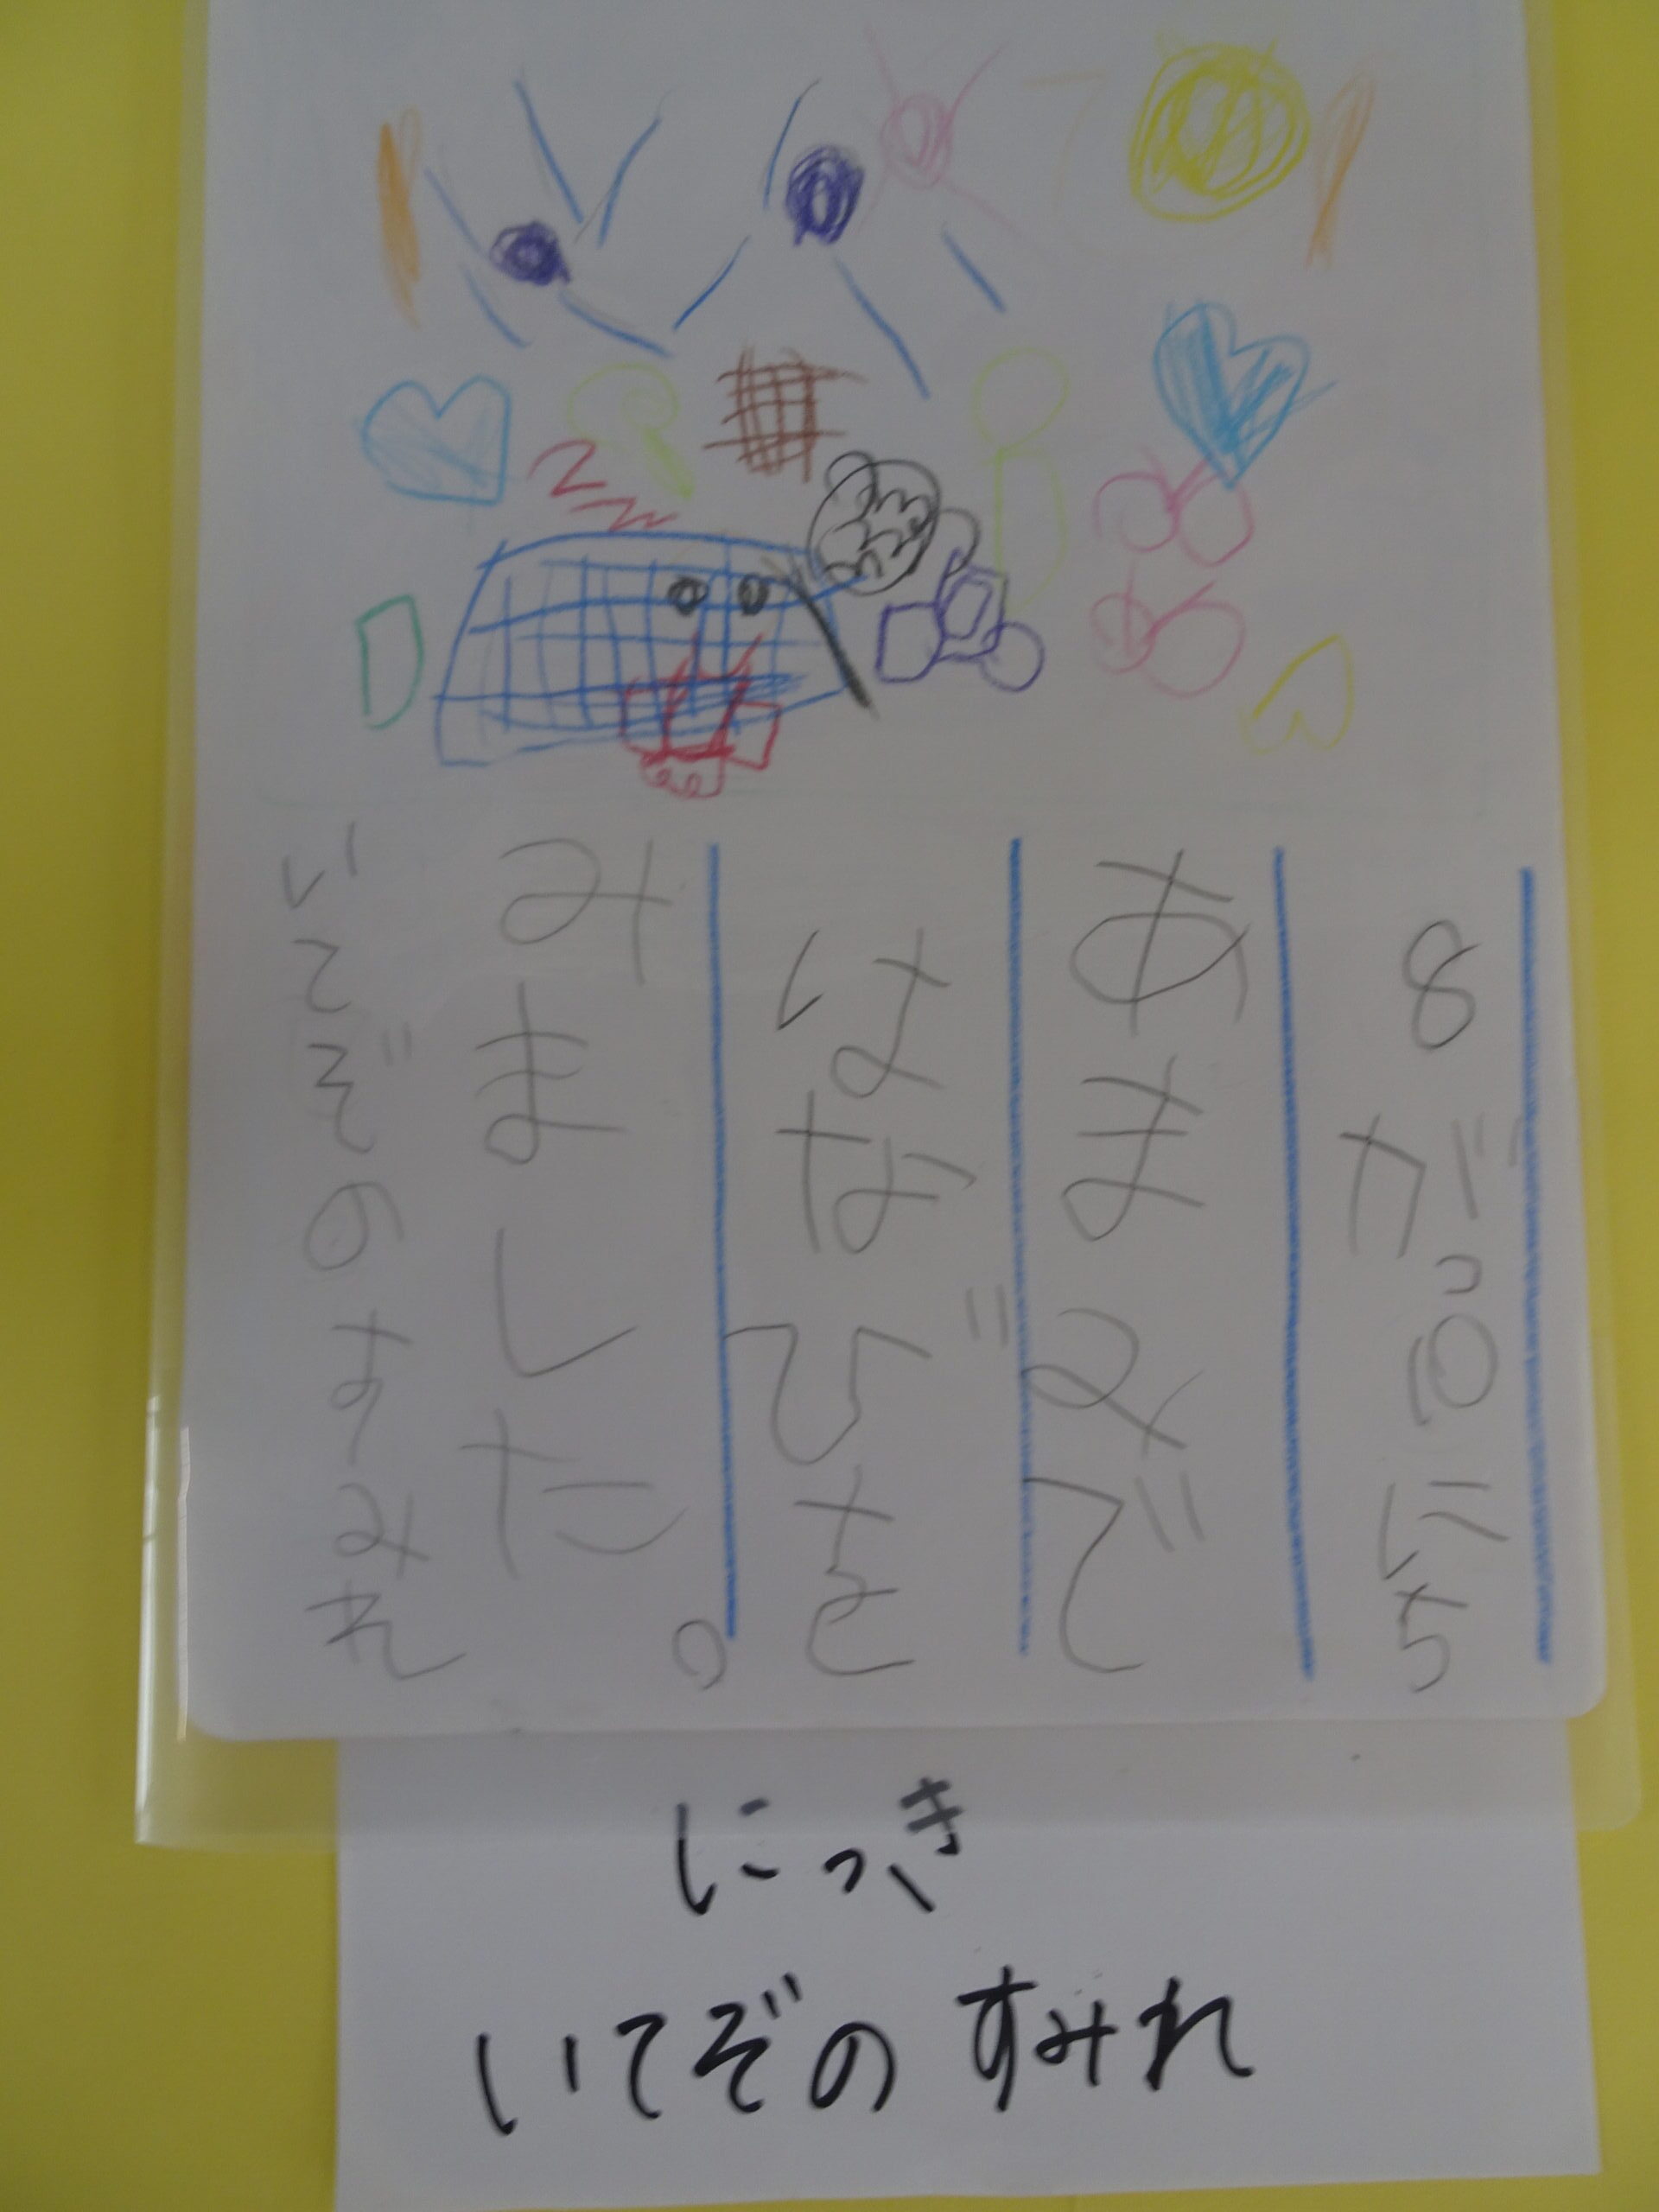 8がつ10にち
あまみで
はなびを
みました。
いてぞのすみれ
にっき
いてぞの すみれ